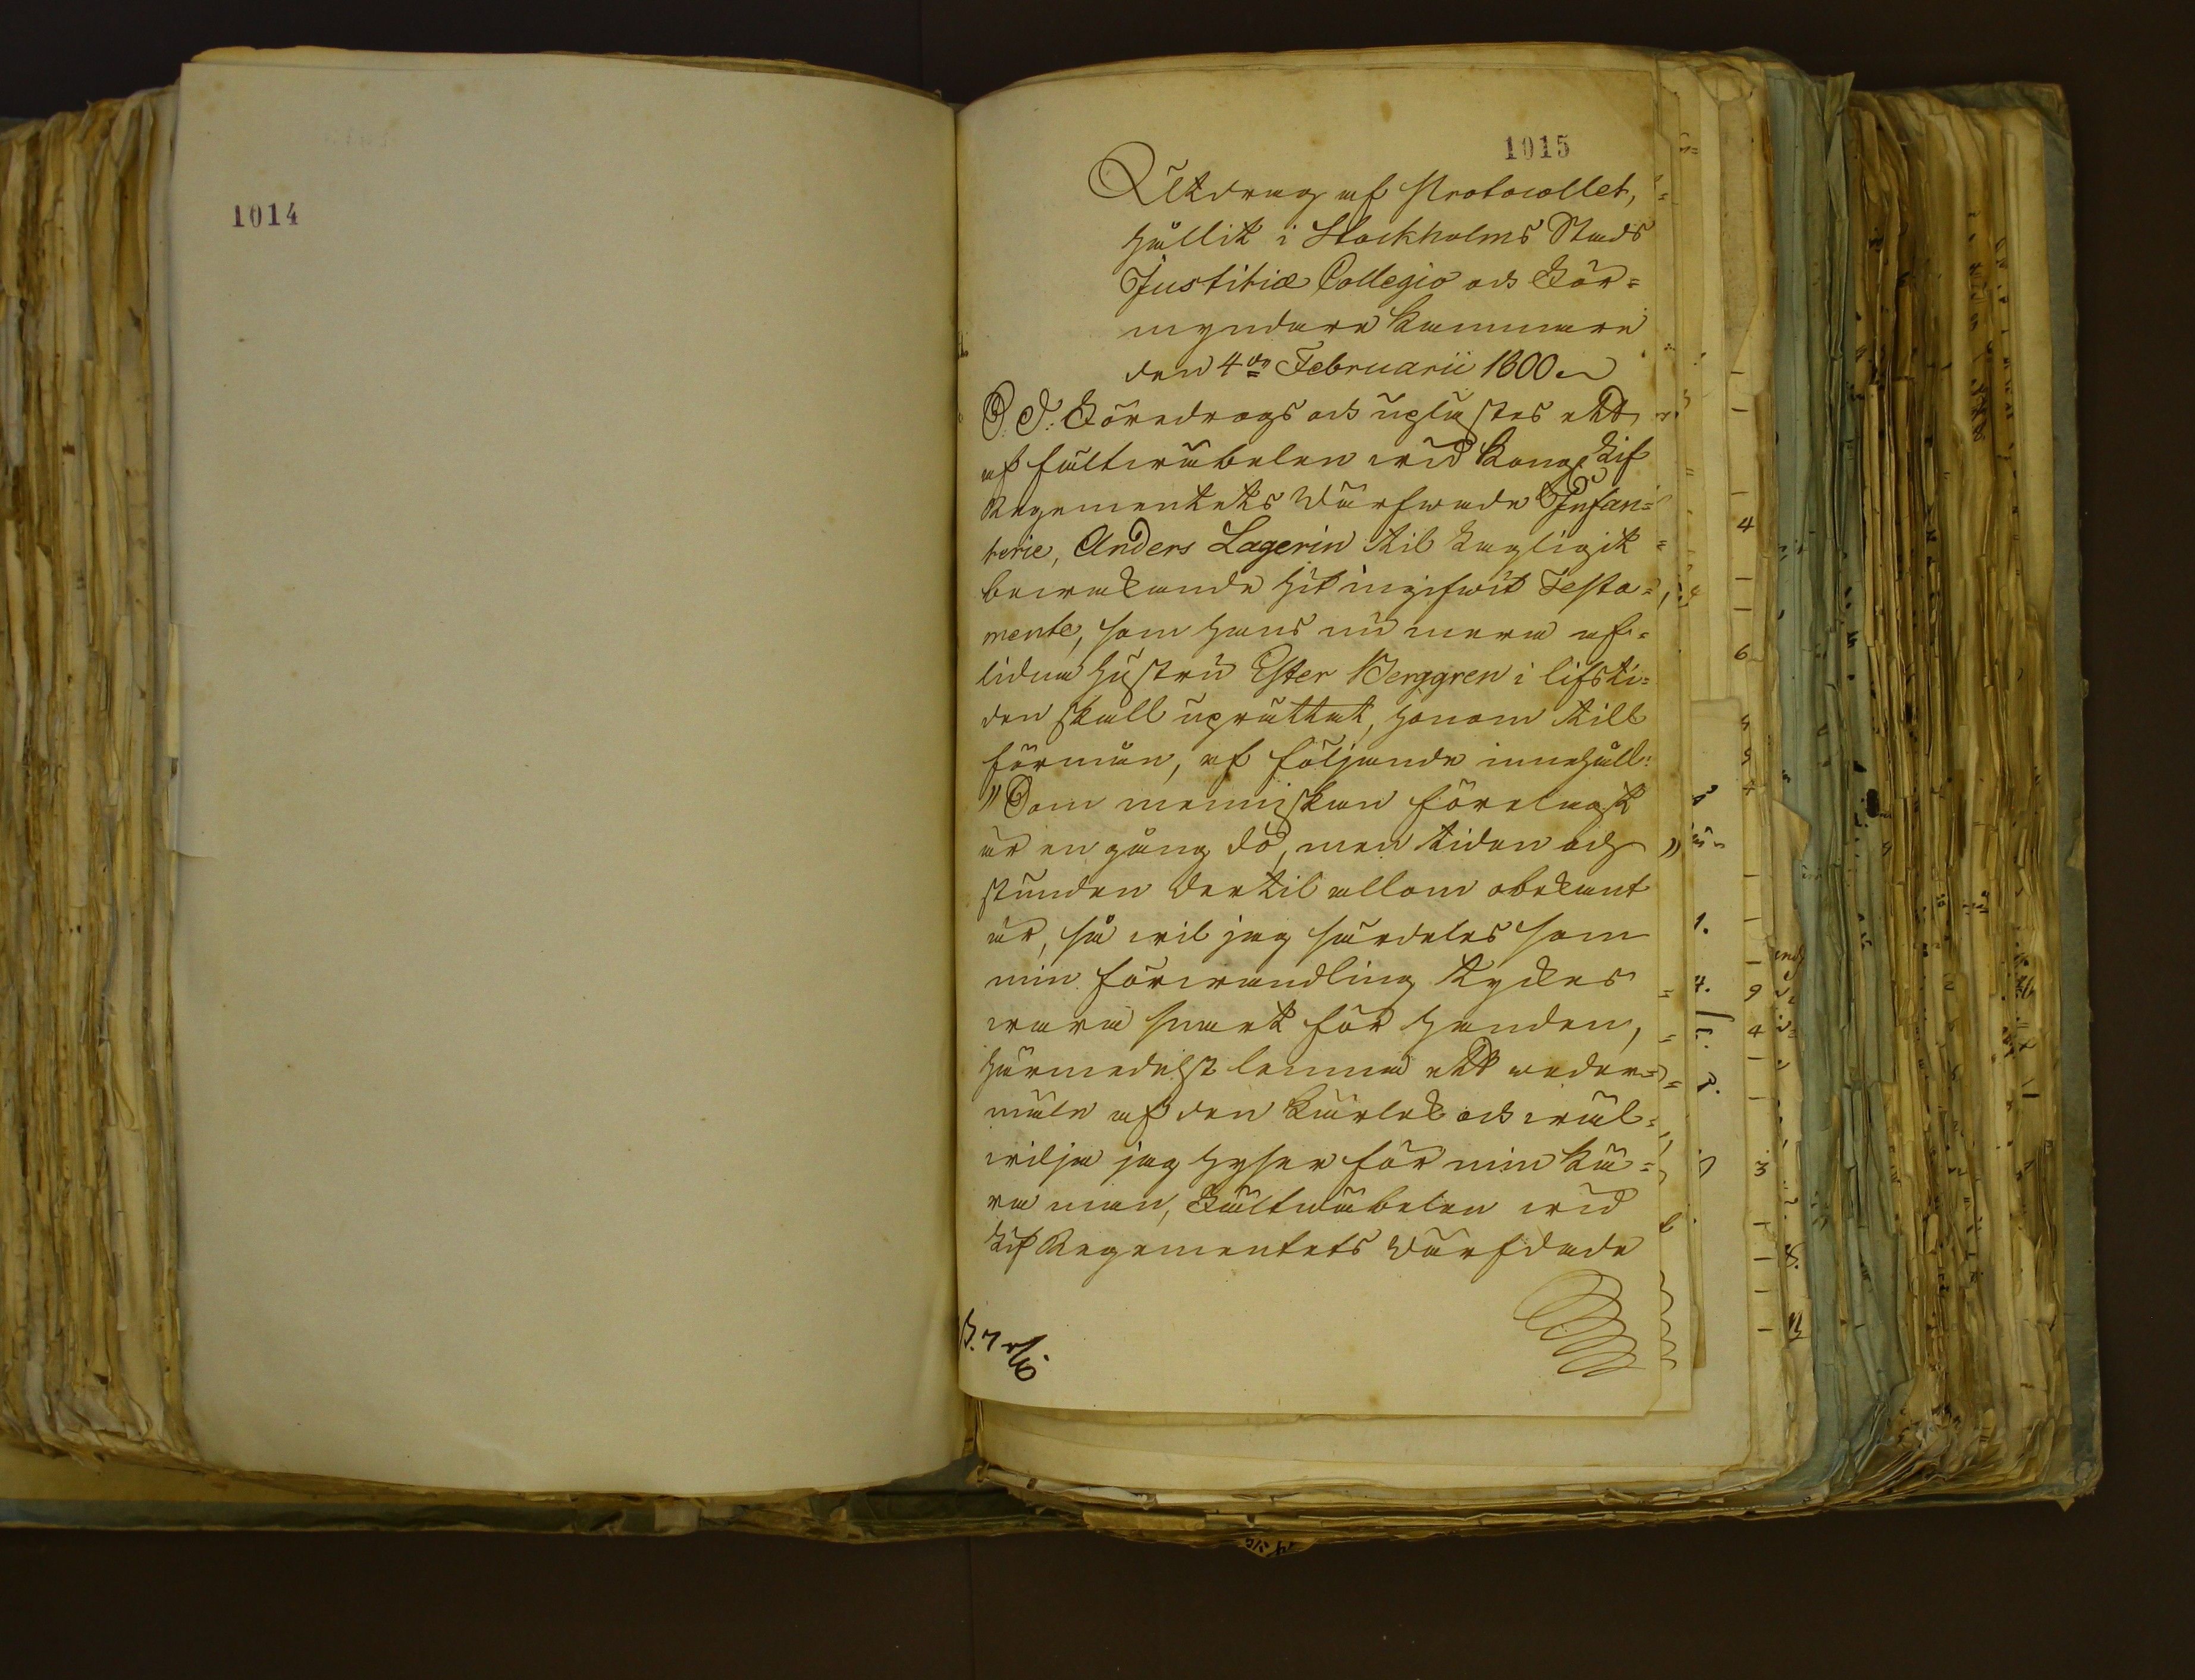 1014
1015
Utdrag af Protocollet,
hållit i Stockholms Stads
Justitiæ Collegio och För=
myndare Kammare
den 4de Februarii 1800
S. D. Föredrogs och uplästes ett,
af fältwäbelen wid Kongl. Lif
Regementets Wärfwade Infan=
terie, Anders Lagerin til lagligit
bewakande hit ingifwit Testa=
mente, som hans nu mera af=
lidna hustru Ester Berggren i lifsti=
den skall uprättat, honom till
förmån, af följande innehåll:
"Som menniskan förelagt
är en gång dö, men tiden och
stunden dertil allom obekant
är, så wil jag särdeles som
min förwandling tyckes
wara snart för handen,
härmedelst lemna ett weder=
mäle af den kärlek och wäl=
wilja jag hyser för min kä=
ra man, Fältwäbelen wid
Lif Regementets Wärfwade